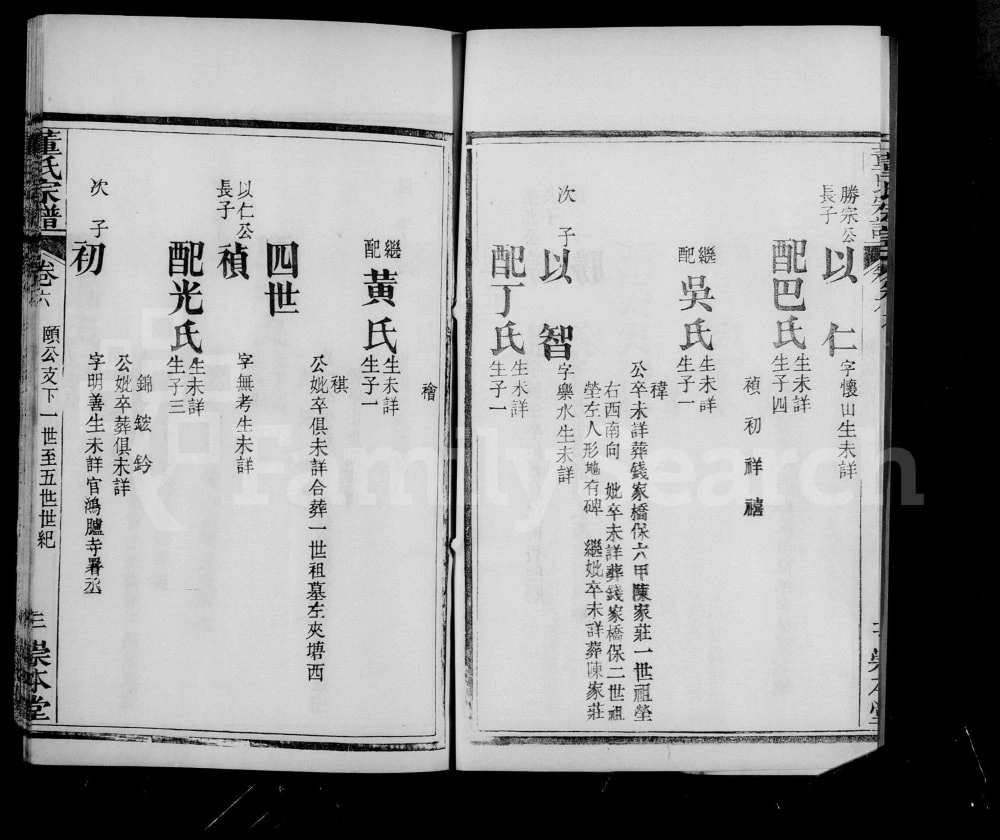 勝宗公長子
以仁 字懷山生未詳
配巴氏 生未詳生子四
禎 初 祥 禧
繼配吳氏 生未詳生子一
禕
公卒未詳葬錢家橋保六甲陳家莊一世祖塋
右西南向 妣卒未詳葬錢家橋保二世祖
塋左人形地有碑 繼妣卒未詳葬陳家莊
次子
以智 字樂水生未詳
配丁氏 生未詳生子一
董氏宗譜
崇本堂
檜
繼配黃氏 生未詳生子一
祺
公妣卒俱未詳合葬一世祖墓左夾塘西
四世
以仁公長子
禎 字無考生未詳
配光氏 生未詳生子三
錦 鋐 鈐
公妣卒葬俱未詳
次子
初 字明善生未詳官鴻臚寺署丞
董氏宗譜 卷六 頤公支下一世至五世世紀 三 崇本堂
FamilySearch